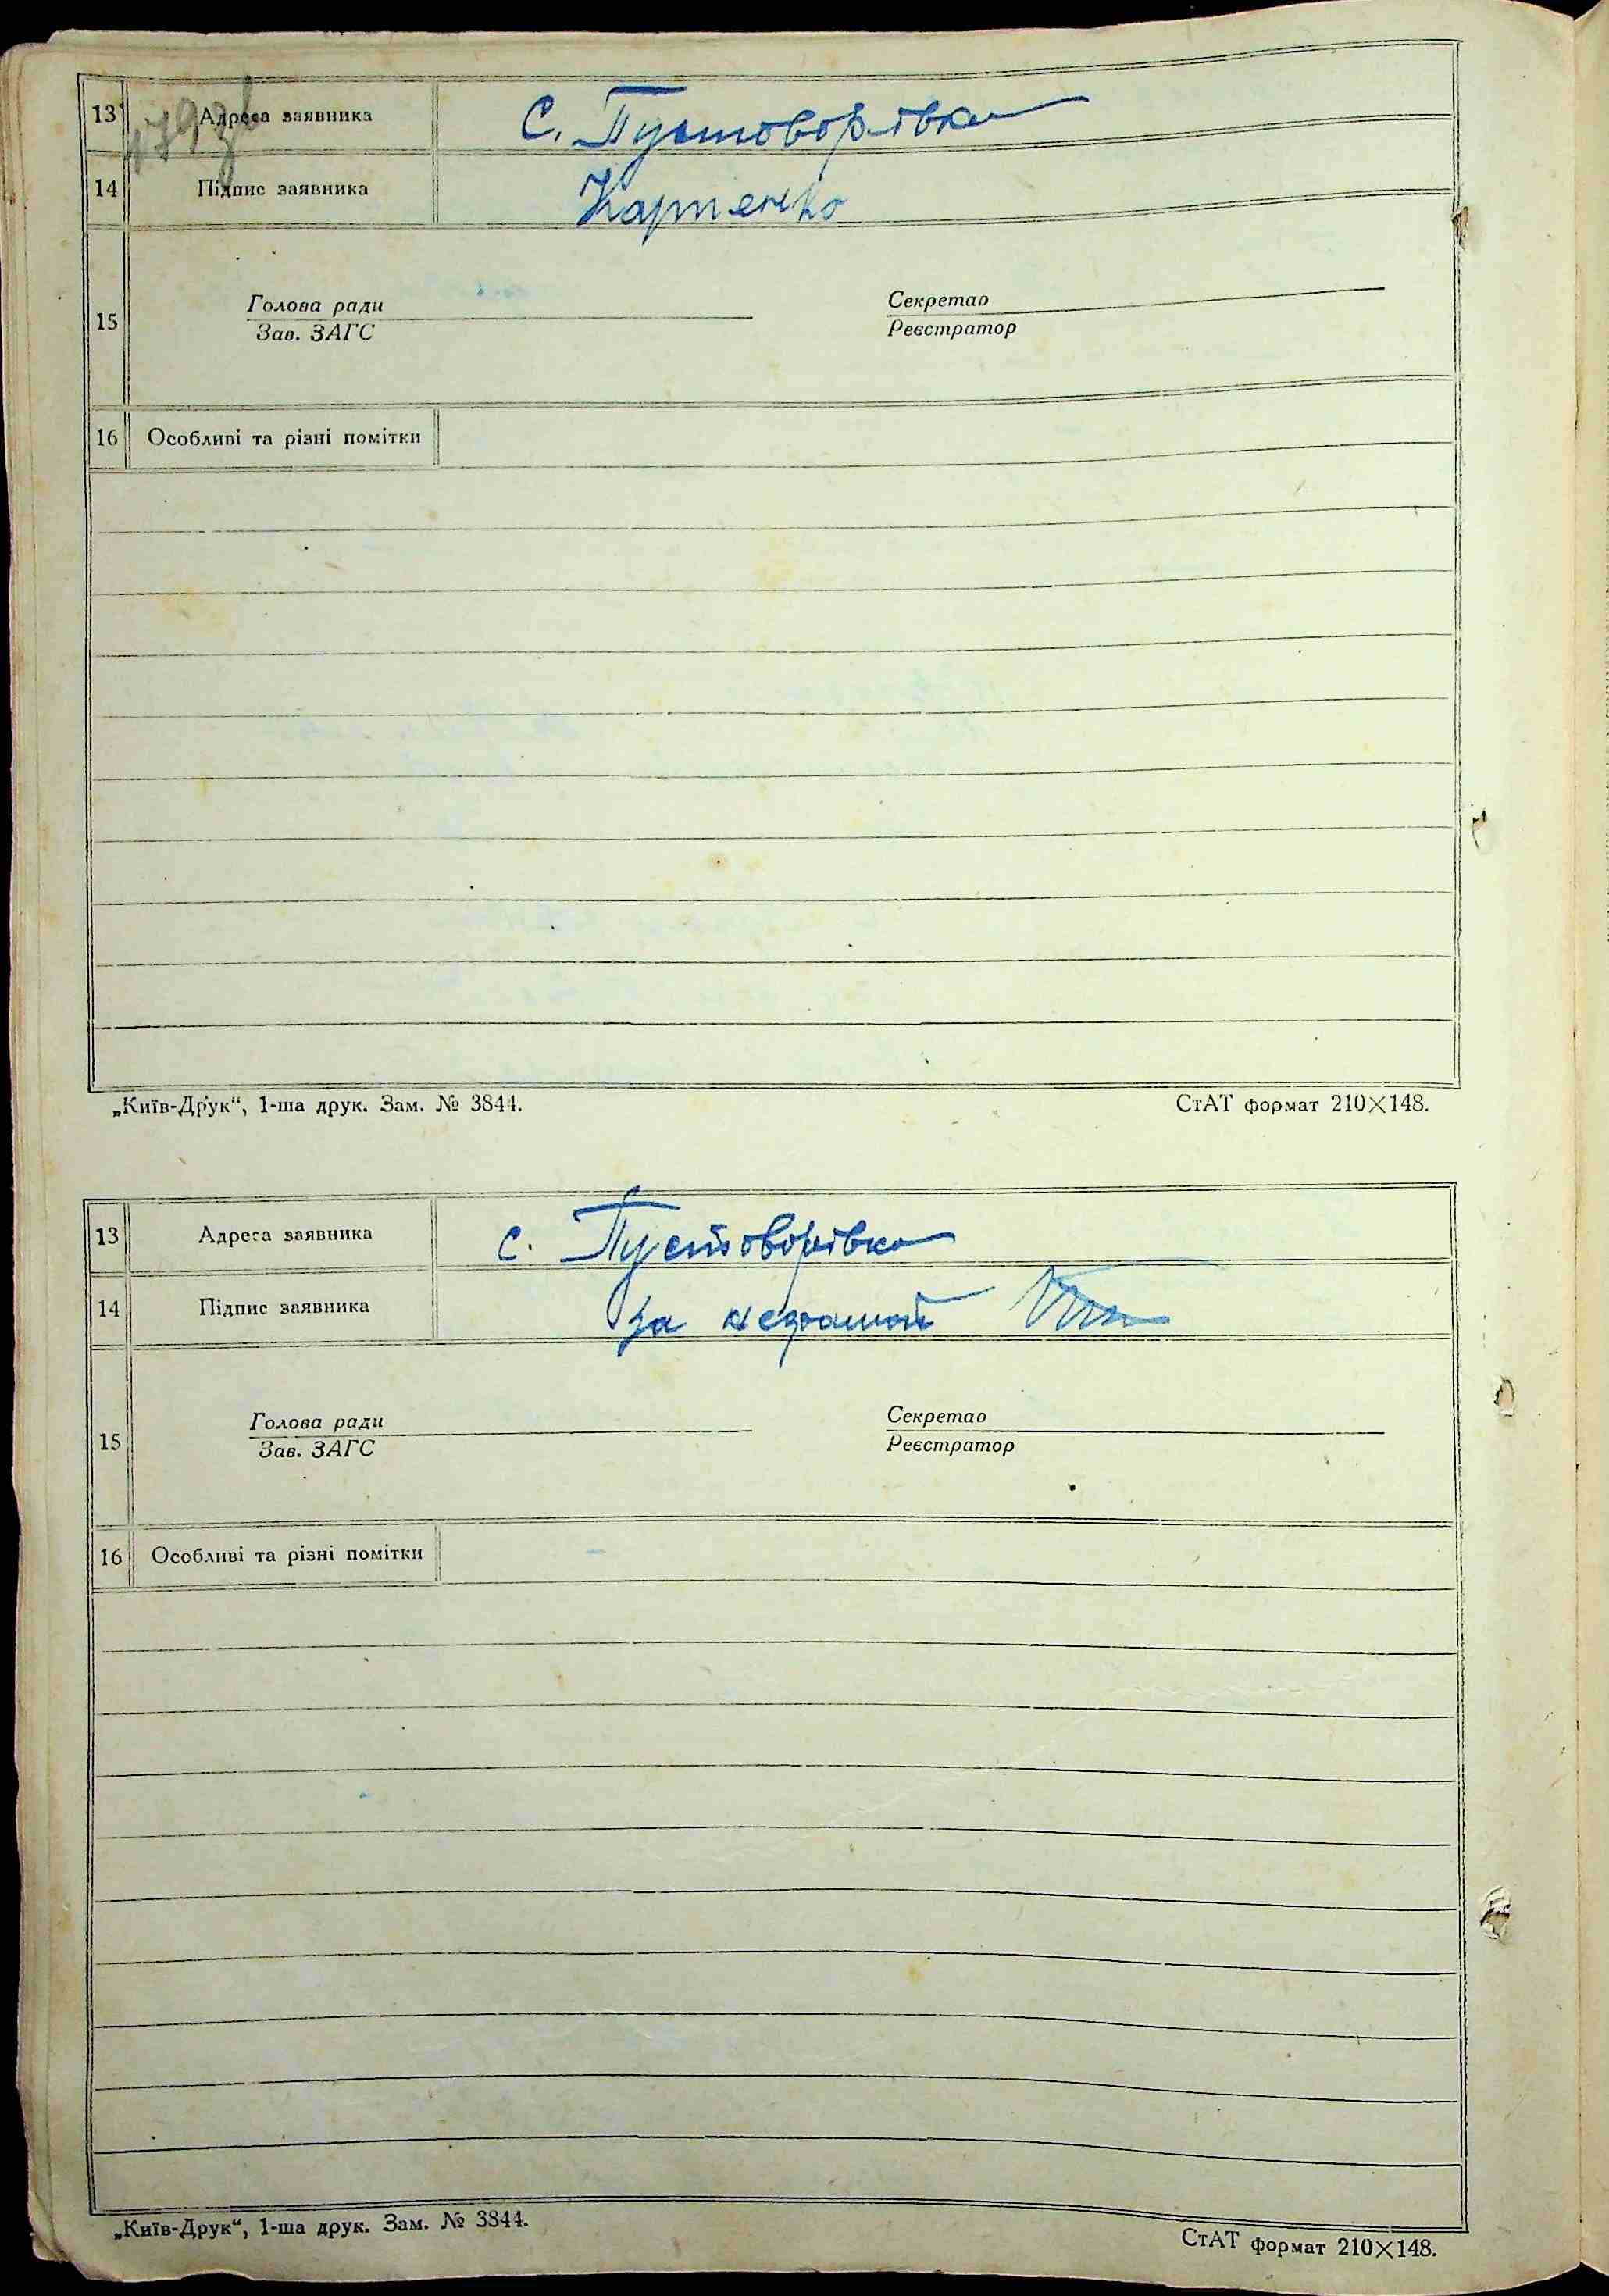 13 Адреса заявника С. Пустоворівка
14 Підпис заявника Карпенко
15 Голова ради Секретар
Зав. ЗАГС Реєстратор
16 Особливі та різні помітки
„Київ-Друк“, 1-ша друк. Зам. № 3844. СтАТ формат 210×148.
13 Адреса заявника с. Пустоворівка
14 Підпис заявника За неграмот
15 Голова ради Секретар
Зав. ЗАГС Реєстратор
16 Особливі та різні помітки -
„Київ-Друк“, 1-ша друк. Зам. № 3844. СтАТ формат 210×148.